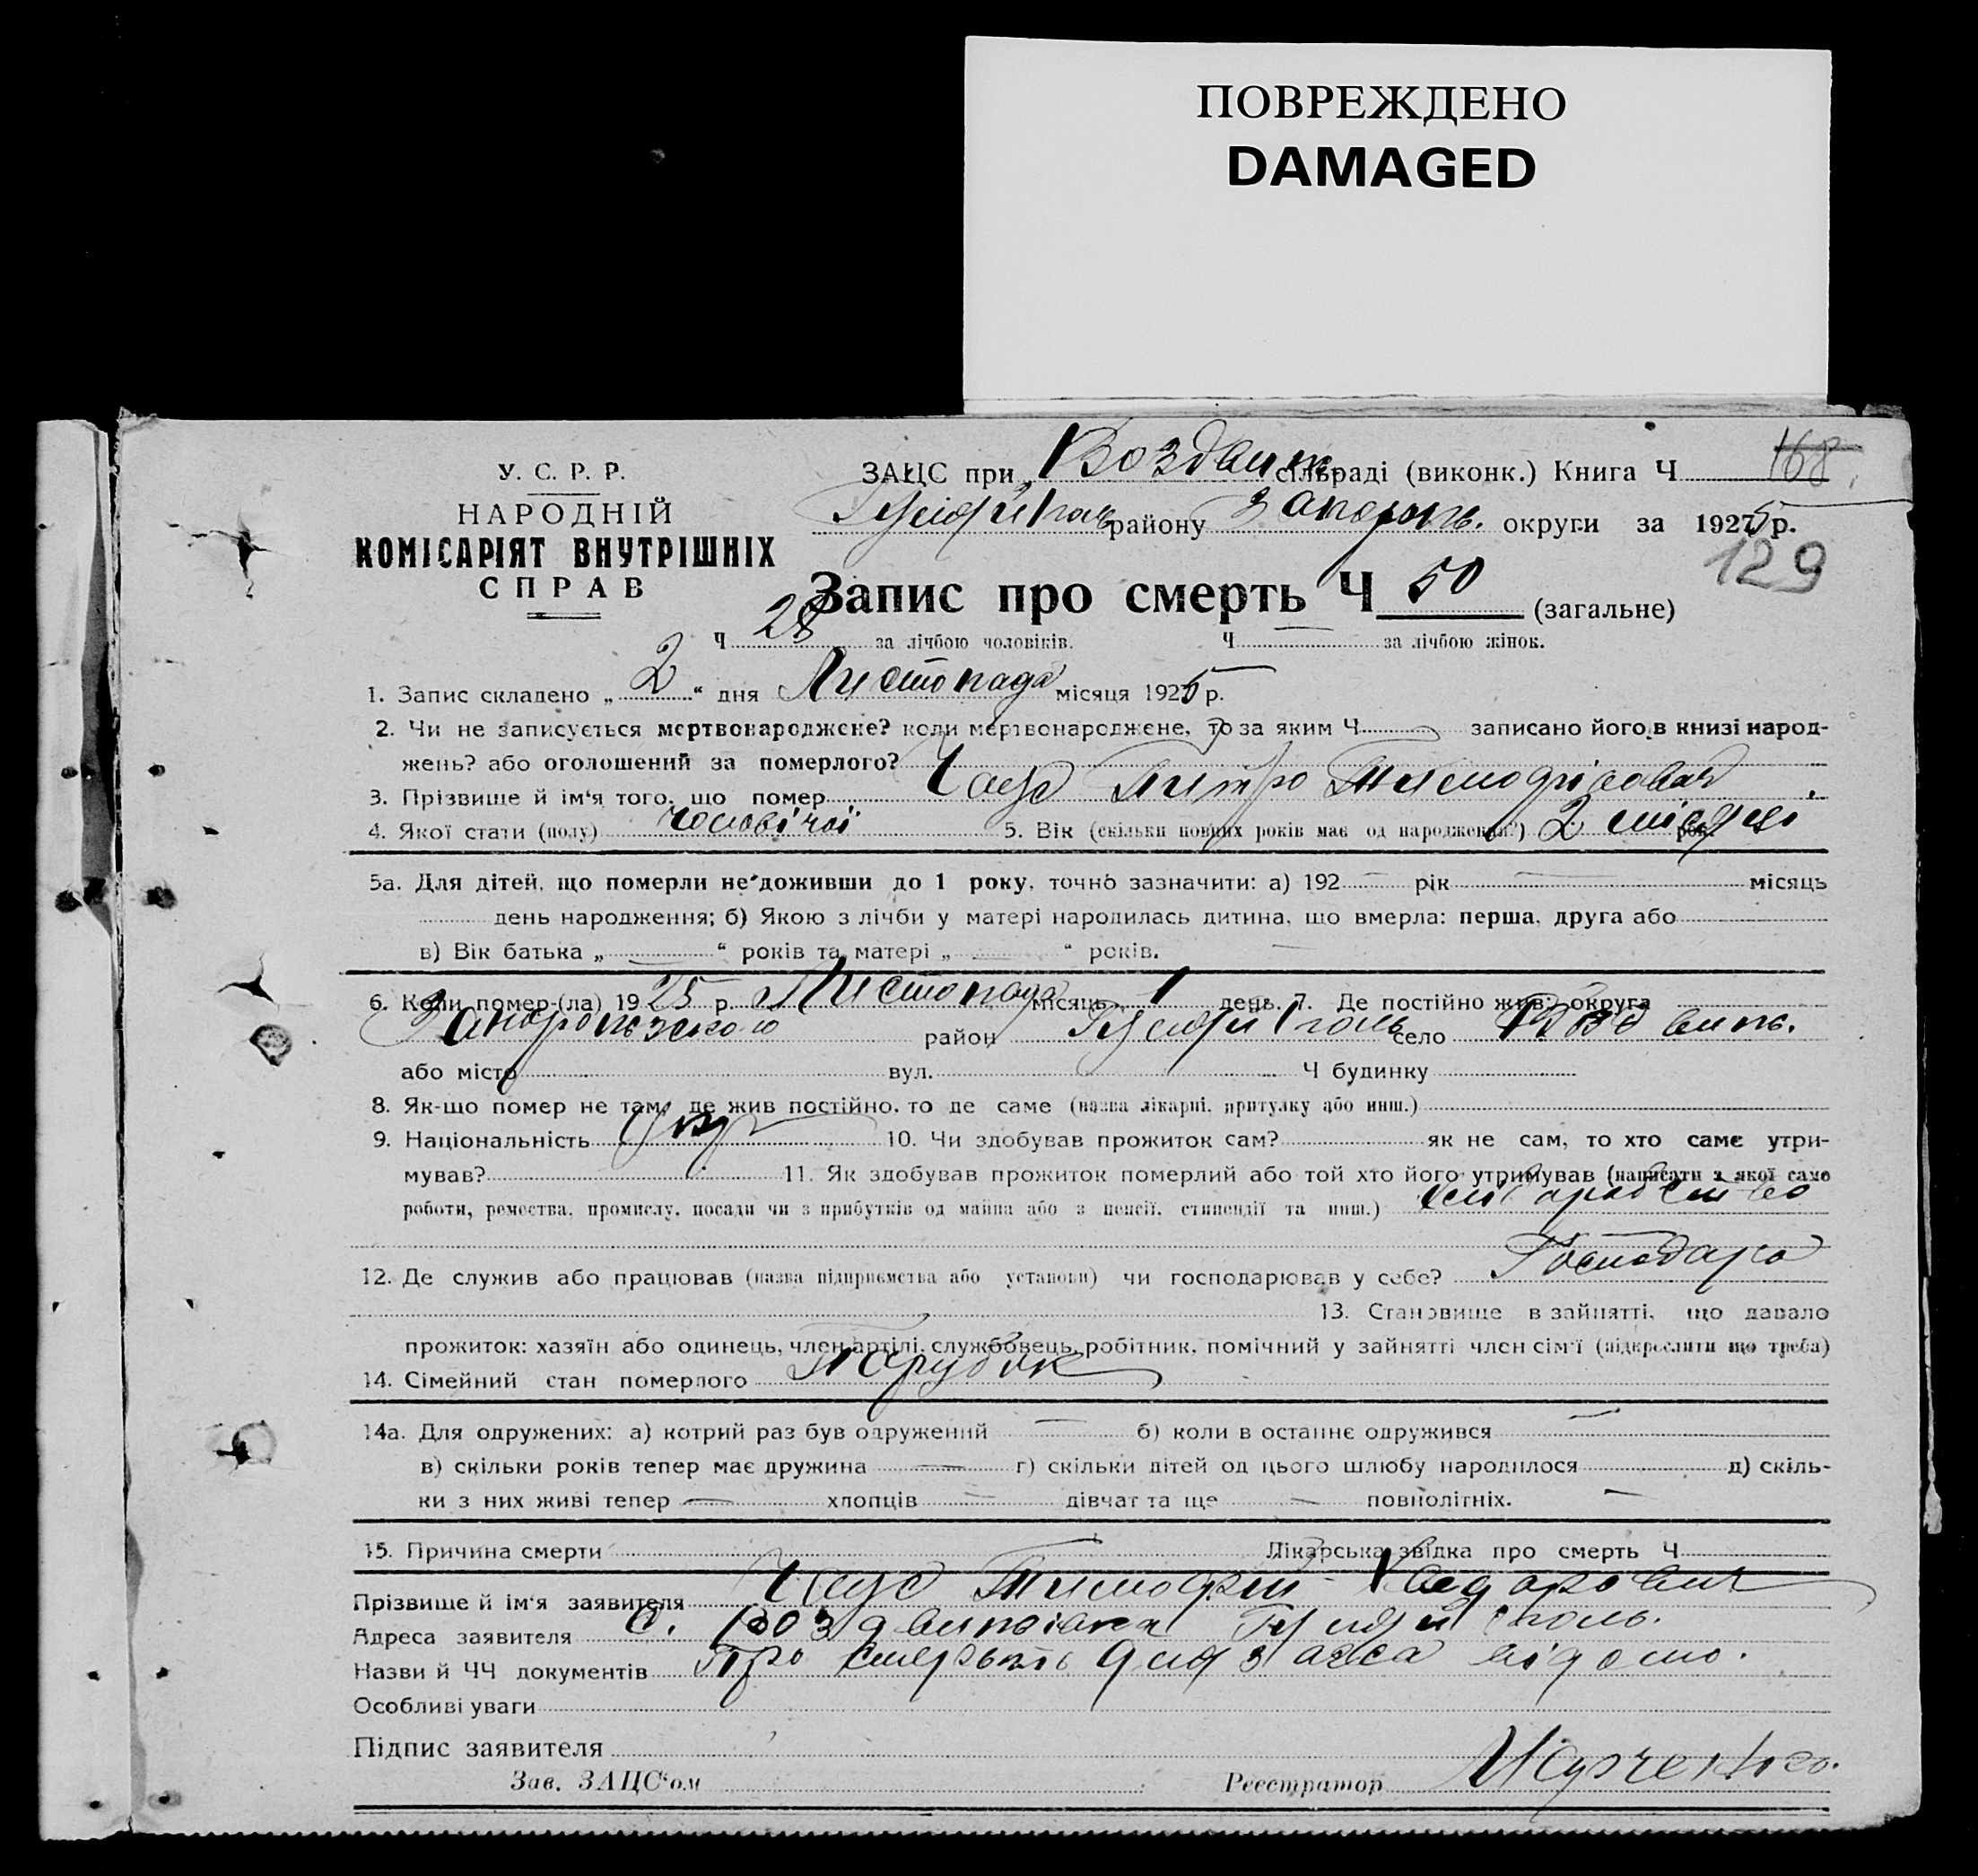 ПОВРЕЖДЕНО
DAMAGED
У. С. Р. Р.
НАРОДНІЙ
КОМІСАРІЯТ ВНУТРІШНІХ
СПРАВ
ЗАЦС при Воздвиж. сільраді (виконк.) Книга Ч 168
Гуляйпол району Запоріж. округи за 1925 р.
129
Запис про смерть Ч 50 (загальне)
Ч 28 за лічбою чоловіків. Ч — за лічбою жінок.
1. Запис складено „ 2 “ дня Листопада місяця 1925 р.
2. Чи не записується мертвонароджене? коли мертвонароджене, то за яким Ч записано його в книзі народ-
жень? або оголошений за померлого?
3. Прізвище й ім'я того, що помер Чаус Питро Тимофієвич
4. Якої стати (полу) чоловічої 5. Вік (скільки повних років має од народження?) 2 місяці рок
5а. Для дітей, що померли не доживши до 1 року, точно зазначити: а) 192 — рік — місяць
день народження; б) Якою з лічби у матері народилась дитина, що вмерла: перша, друга або
в) Вік батька „ — “ років та матері „ — “ років. —
6. Коли помер-(ла) 1925 р. Листопада місяць 1 день. 7. Де постійно жив: округа
район Гуляйполь село Воздвиж.
або місто вул. Ч будинку
8. Як-що помер не там, де жив постійно, то де саме (назва лікарні, притулку або инш.)
9. Національність Укр 10. Чи здобував прожиток сам? як не сам, то хто саме утри-
мував? 11. Як здобував прожиток померлий або той хто його утримував (написати з якої саме
роботи, ремества, промислу, посади чи з прибутків од майна або з пенсії, стипендії та инш.) хліборобство
12. Де служив або працював (назва підприємства або установи) чи господарював у себе? Господарю
13. Становище в зайнятті, що давало
прожиток: хазяїн або одинець, член артілі, службовець, робітник, помічний у зайнятті член сім'ї (підкреслити що треба)
14. Сімейний стан померлого Парубок
14а. Для одружених: а) котрий раз був одружений — б) коли в останнє одружився —
в) скільки років тепер має дружина — г) скільки дітей од цього шлюбу народилося д) скіль-
ки з них живі тепер — хлопців — дівчат та ще — повнолітніх. —
15. Причина смерти Лікарська звідка про смерть Ч
Прізвище й ім'я заявителя Чаус Тимофій
Адреса заявителя С. Воздвижівка Гуляйполь.
Назви й ЧЧ документів Про смерьть відомо.
Особливі уваги
Підпис заявителя
Зав. ЗАЦС'ом Реєстратор